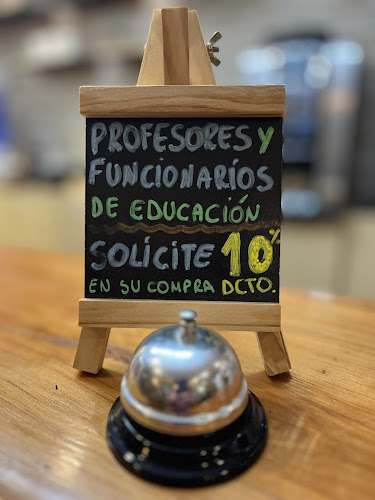 PROFESORES Y
FUNCIONARÍOS
DE EDUCACIÓN
SOLÍCITE 10%
EN SU COMPRA DCTO.